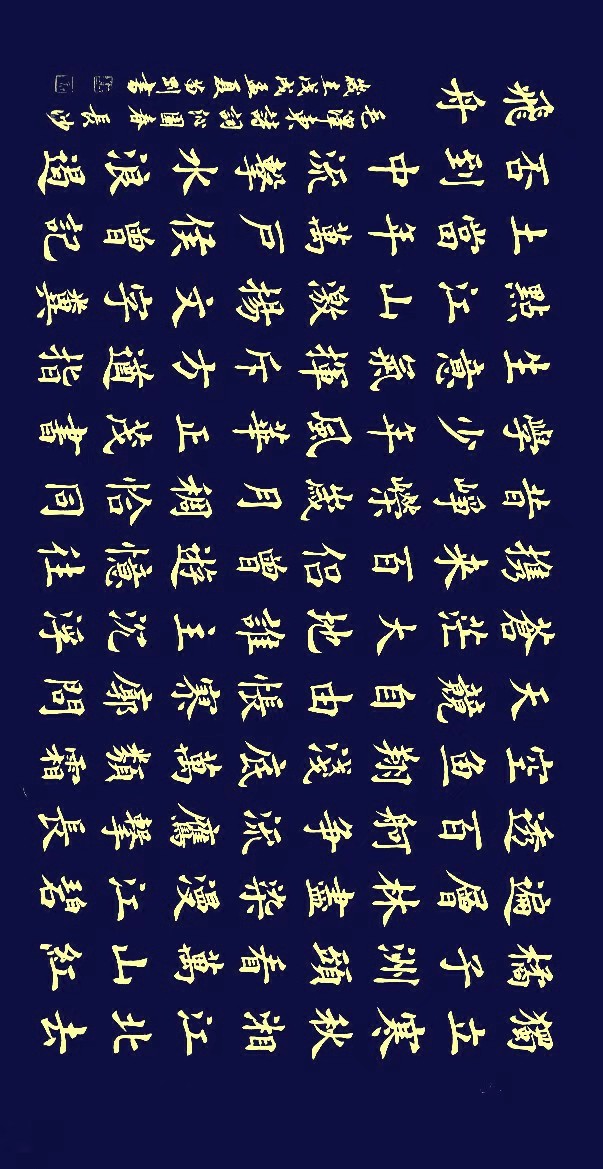 獨立寒秋湘江北去
橘子洲頭看萬山紅
遍層林盡染漫江碧
透百舸争流鷹擊長
空魚翔淺底萬類霜
天競自由悵寥廓問
蒼茫大地誰主沉浮
携来百侣曾遊憶往
昔崢嶸歲月稠恰同
學少年風華正茂書
生意氣揮斥方遒指
點江山激揚文字糞
土當年萬户侯曾記
否到中流擊水浪遏
飛舟
毛澤東詩詞沁園春長沙
歲在戊戌孟夏書